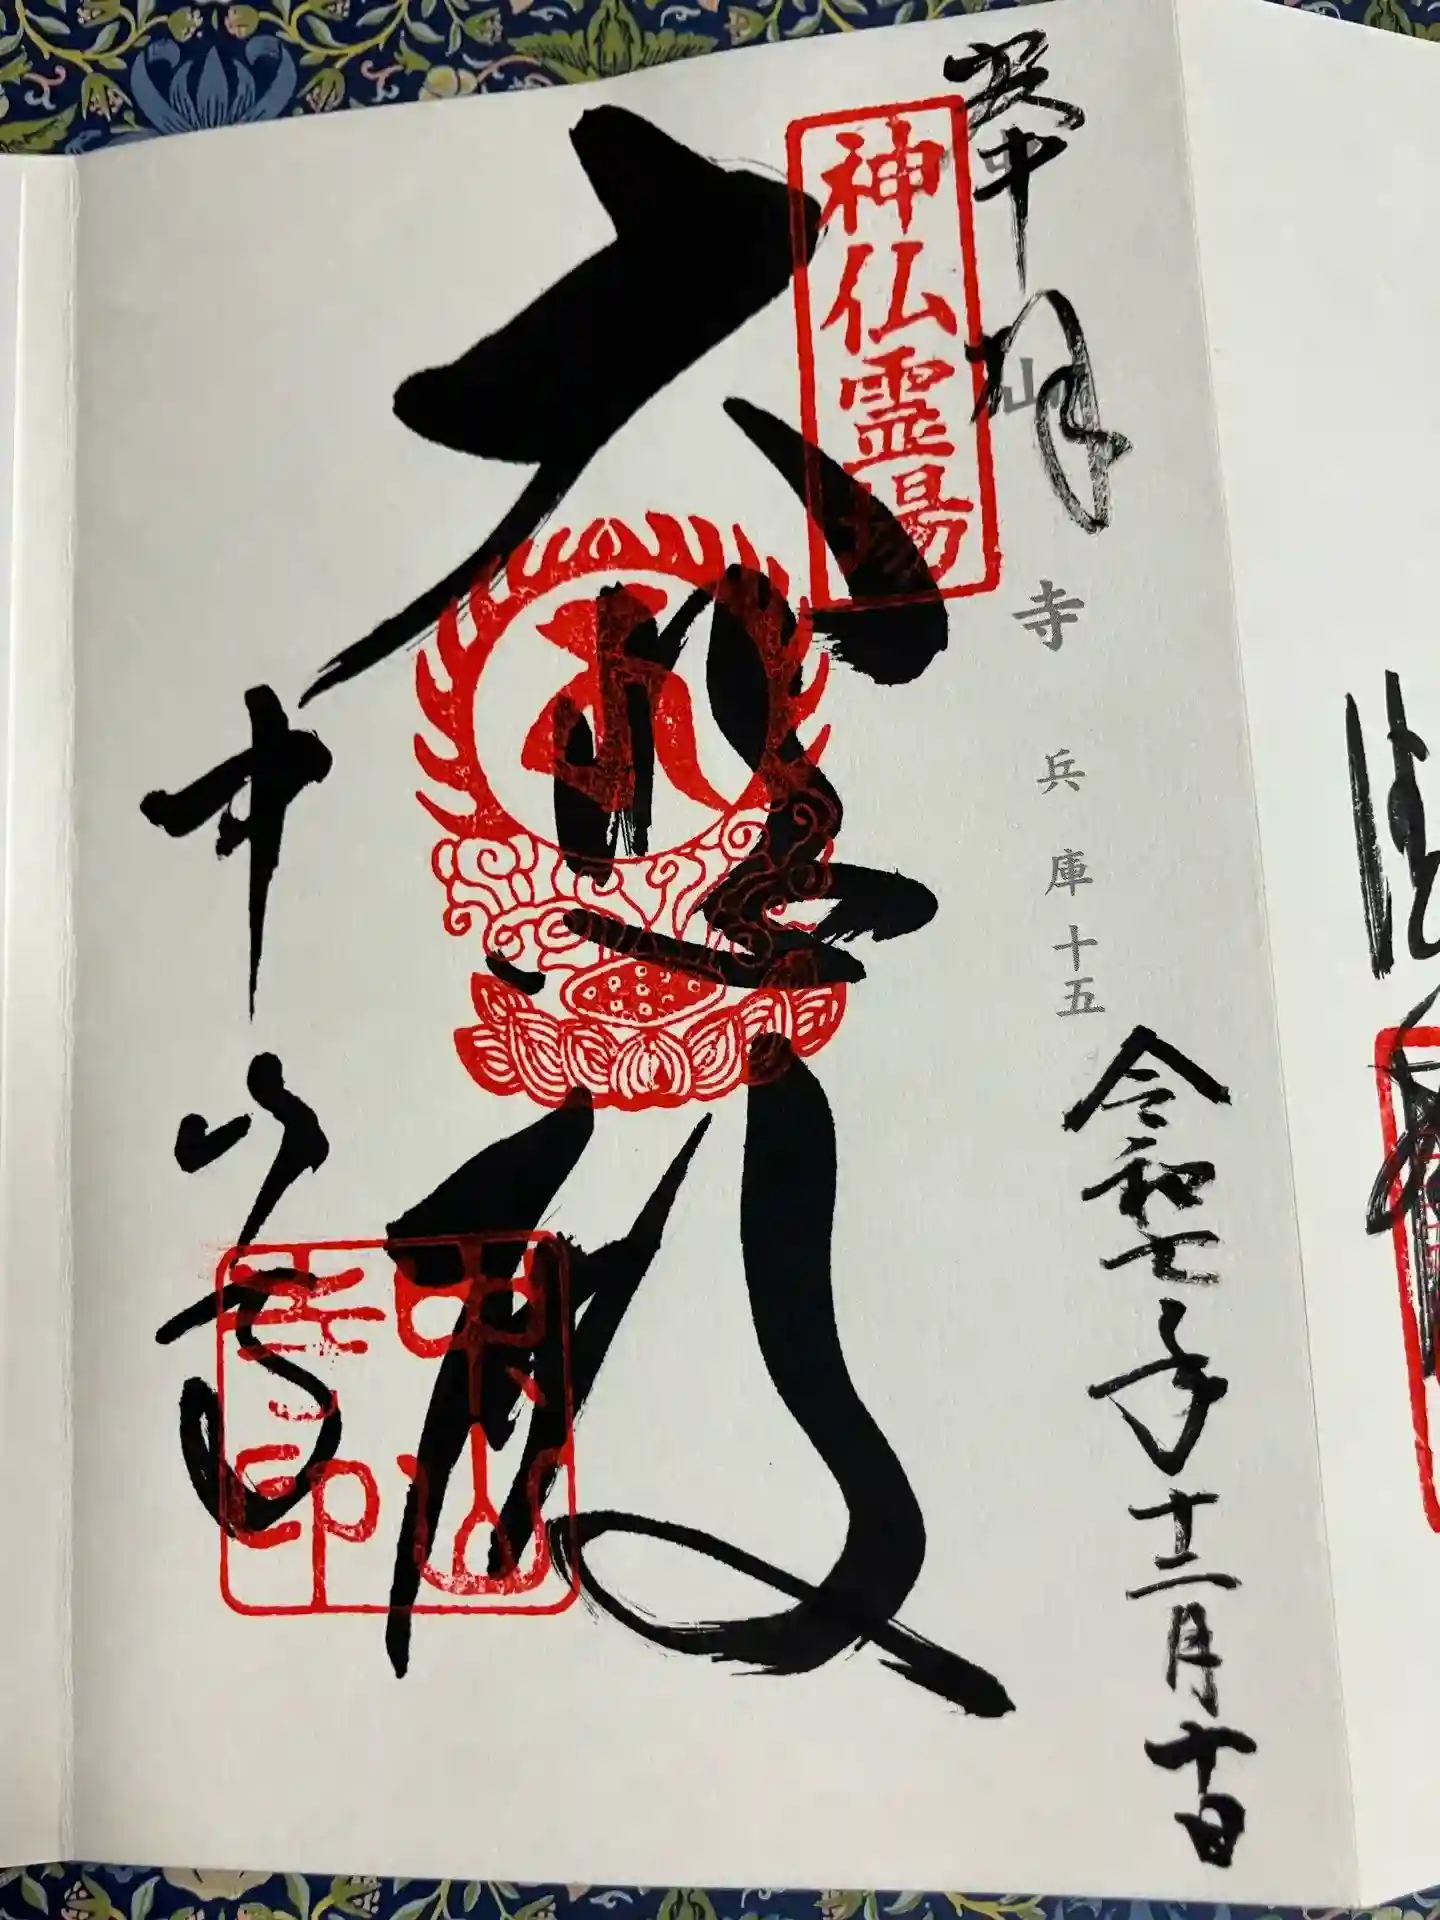 奉拝
中山寺 兵庫十五
令和七年十二月十日
神仏霊場
大悲殿
中山寺
中山寺印